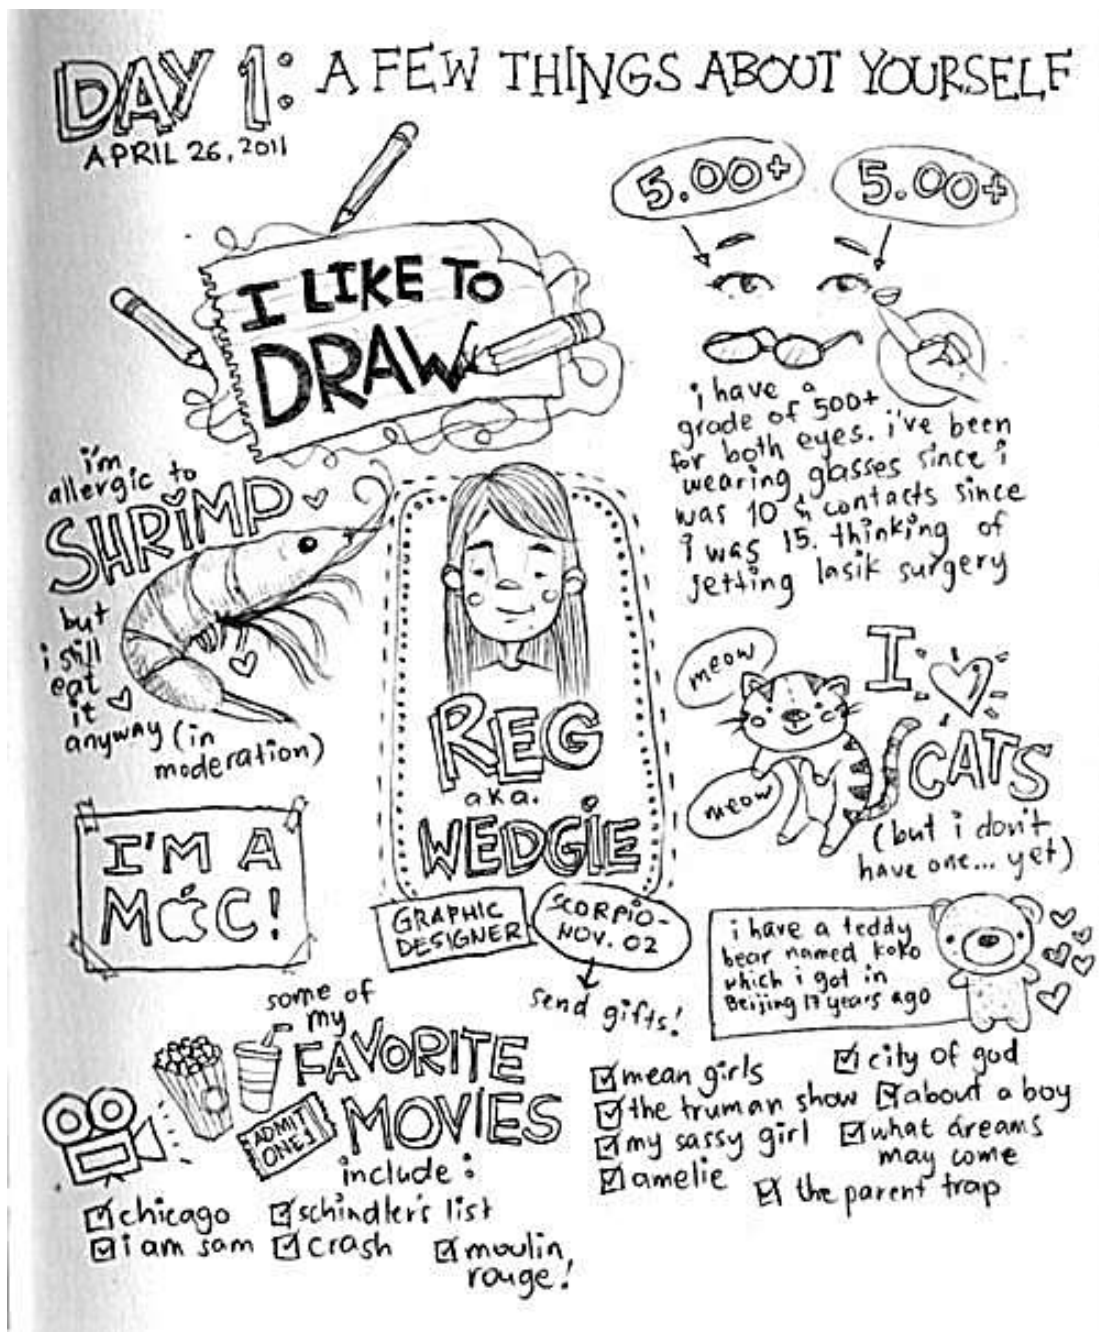 DAY 1: A FEW THINGS ABOUT YOURSELF
APRIL 26, 2011
I LIKE TO
DRAW
5.00+ 5.00+
i have a
grade of 500+
for both eyes. i've been
wearing glasses since i
was 10 & contacts since
i was 15. thinking of
getting lasik surgery
i'm
allergic to
SHRiMP
but
i still
eat
it
anyway (in
moderation)
REG
a.k.a.
WEDGiE
GRAPHIC
DESIGNER
SCORPIO-
NOV. 02
send gifts!
meow
meow
I
CATS
(but i don't
have one... yet)
I'M A
MC!
i have a teddy
bear named koko
which i got in
Beijing 17 years ago
some of
my
FAVORITE
MOVIES
include:
ADMIT
ONE 1
chicago
schindler's list
i am sam
crash
moulin
rouge!
mean girls
city of god
the truman show
about a boy
my sassy girl
what dreams
may come
amelie
the parent trap